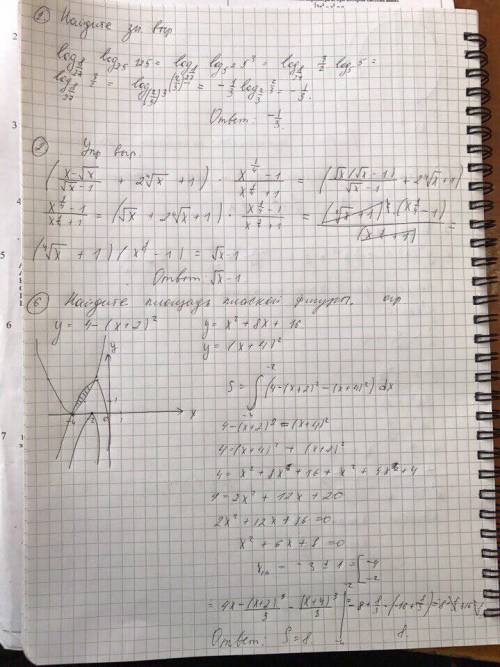 ① Найдите зн выр
log_{8/27} log_{25} 125 = log_{8/27} log_{5^2} 5^3 = log_{8/27} 3/2 log_5 5 =
log_{8/27} 3/2 = log_{(2/3)^3} (2/3)^{-1} = -1/3 log_{2/3} 2/3 = -1/3.
Ответ: -1/3.
Упр выр.
((x-√x)/(√x-1) + 2∜x + 1) · (x^{1/4}-1)/(x^{1/4}+1) = (√x(√x-1)/(√x-1) + 2∜x+1)
(x^{1/4}-1)/(x^{1/4}+1) = (√x + 2∜x+1) · (x^{1/4}-1)/(x^{1/4}+1) = (∜x+1)^2 · (x^{1/4}-1)/(x^{1/4}+1) =
(∜x + 1)(x^{1/4}-1) = √x-1
Ответ: √x-1
⑥ Найдите площадь плоской фигуры, огр
y = 4-(x+2)^2 y = x^2+8x+16
y = (x+4)^2
y
S = ∫_{-4}^{-2} (4-(x+2)^2-(x+4)^2) dx
-4 -2 0 1 x
4-(x+2)^2=(x+4)^2
4=(x+4)^2 + (x+2)^2
4= x^2+8x+16 + x^2 + 4x+4
4=2x^2 + 12x + 20
2x^2+12x+16=0
x^2 + 6x+8 =0
x_{1,2} = -3 ± 1 = [-4 -2
= 4x - (x+2)^3/3 - (x+4)^3/3 |_{-4}^{-2}
Ответ: S=8.